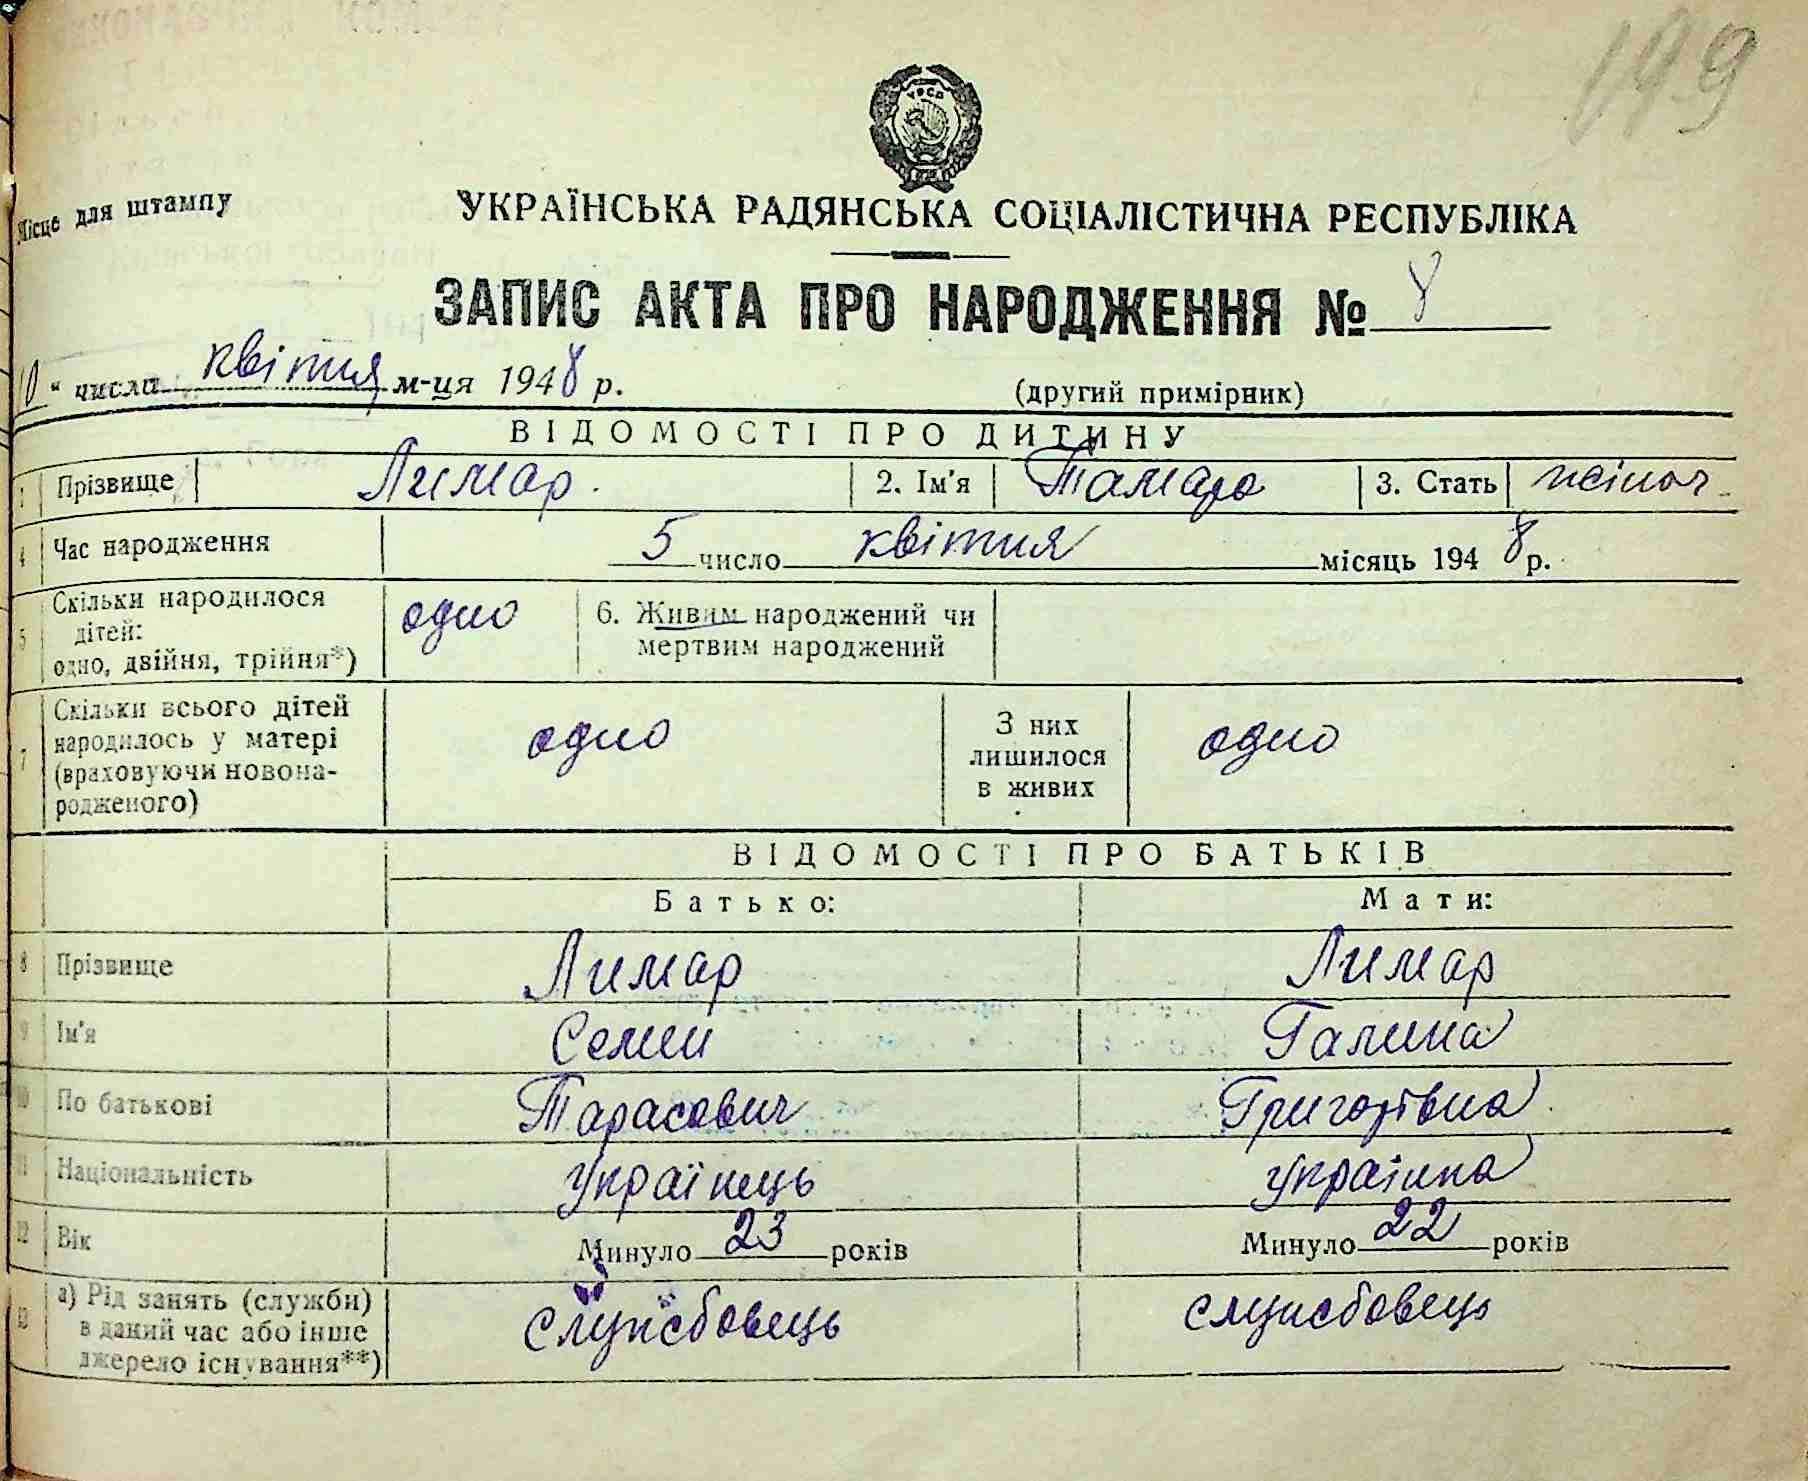 199
УРСР
Місце для штампу
УКРАЇНСЬКА РАДЯНСЬКА СОЦІАЛІСТИЧНА РЕСПУБЛІКА
ЗАПИС АКТА ПРО НАРОДЖЕННЯ № 8
10 " числа квітня м-ця 1948 р.
(другий примірник)
ВІДОМОСТІ ПРО ДИТИНУ
1 Прізвище Лимар. 2. Ім'я Тамара 3. Стать жіноч.
4 Час народження 5 число квітня місяць 1948 р.
5 Скільки народилося дітей: одно, двійня, трійня*) одно 6. Живим народжений чи мертвим народжений
7 Скільки всього дітей народилось у матері (враховуючи новонародженого) одно З них лишилося в живих одно
ВІДОМОСТІ ПРО БАТЬКІВ
Батько: Мати:
8 Прізвище Лимар Лимар
9 Ім'я Семен Галина
10 По батькові Тарасович Григорівна
11 Національність Українець українка
12 Вік Минуло 23 років Минуло 22 років
13 а) Рід занять (служби) в даний час або інше джерело існування**) службовець службовець